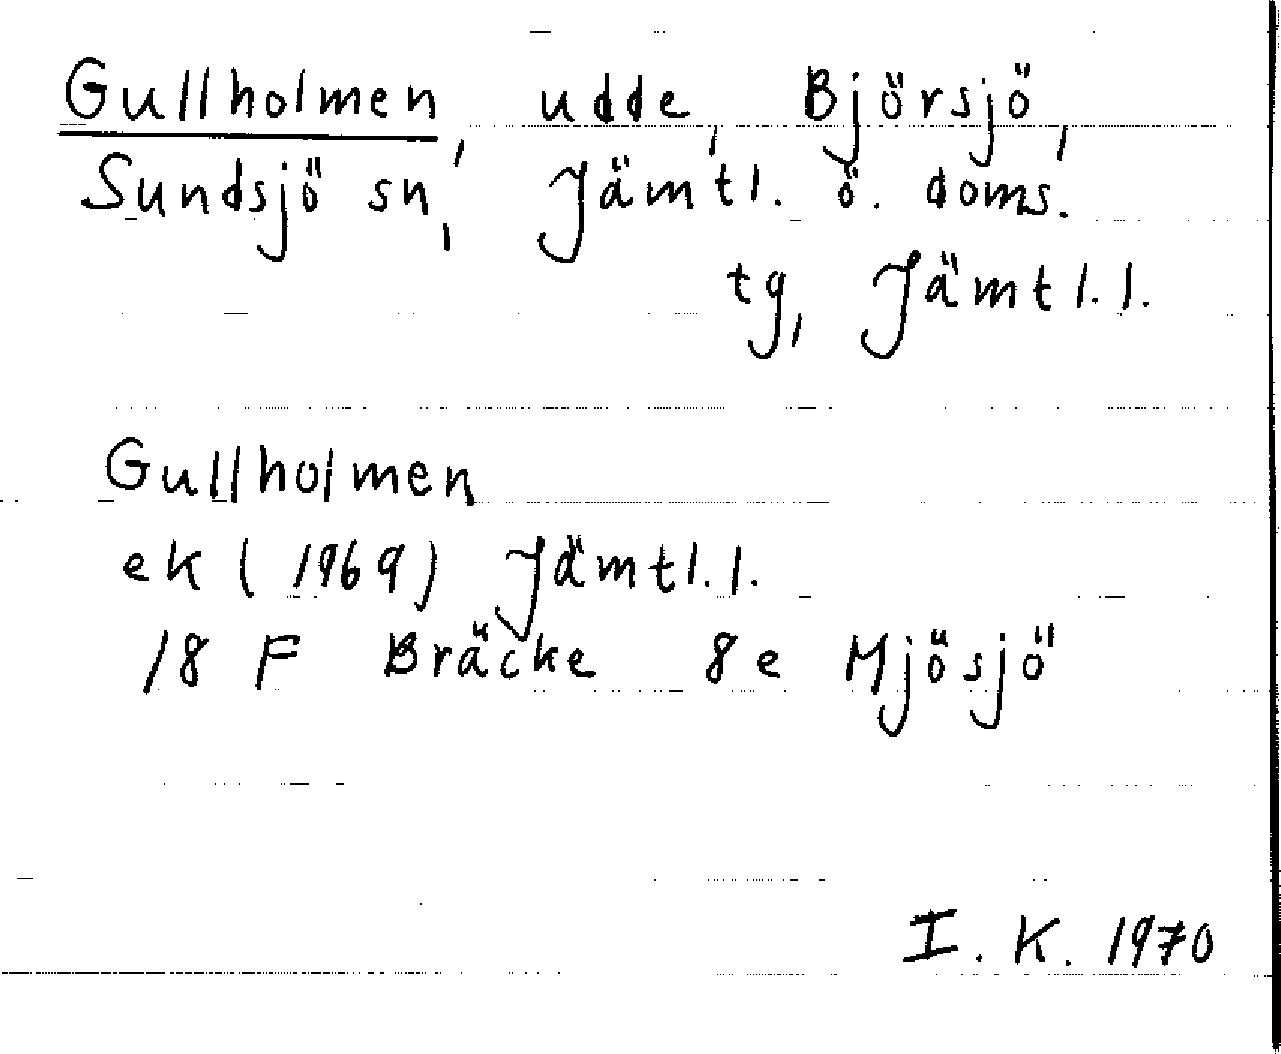 Gullholmen, udde, Björsjö,
Sundsjö sn, Jämtl. ö. doms.
tg, Jämtl. l.
Gullholmen
ek (1969) Jämtl. l.
18 F Bräcke 8e Mjösjö
I. K. 1970